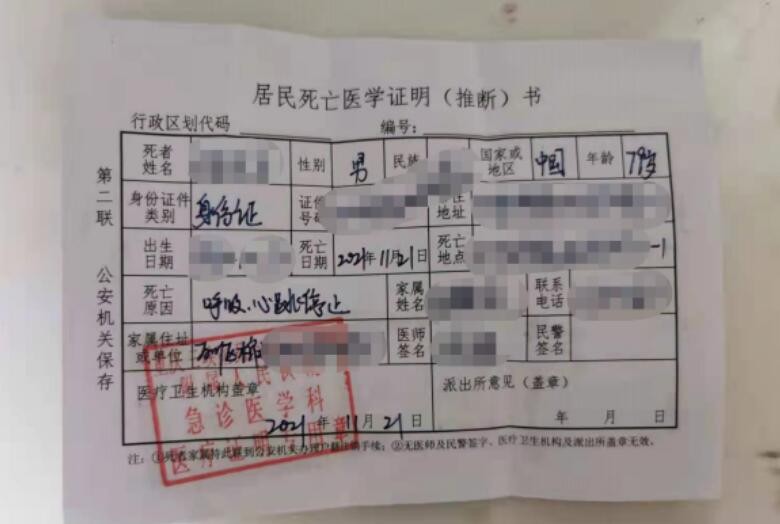 居民死亡医学证明（推断）书
行政区划代码 编号：
第二联 公安机关保存
死者姓名 性别 男 民族 国家或地区 中国 年龄 79岁
身份证件类别 身份证 证件号码 地址
出生日期 死亡日期 2021年11月21日 死亡地点 -1
死亡原因 呼吸、心跳停止 家属姓名 联系电话
家属住址或单位 医师签名 民警签名
医疗卫生机构盖章 派出所意见（盖章）
急诊医学科
医疗证明专用章
2021年11月21日 年 月 日
注：①死者家属持此联到公安机关办理户籍注销手续；②无医师及民警签字、医疗卫生机构及派出所盖章无效。